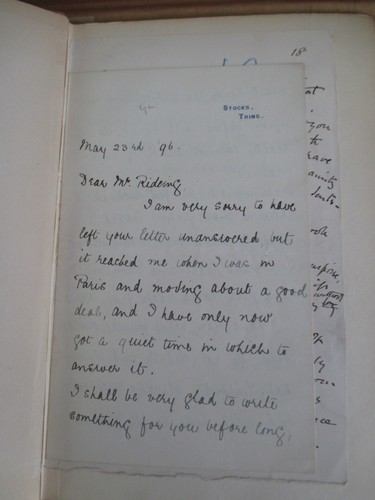 18
STOCKS,
TRING.
May 23rd 96.
Dear Mr. Rideing,
I am very sorry to have
left your letter unanswered, but
it reached me when I was in
Paris and moving about a good
deal, and I have only now
got a quiet time in which to
answer it.
I shall be very glad to write
something for you before long,